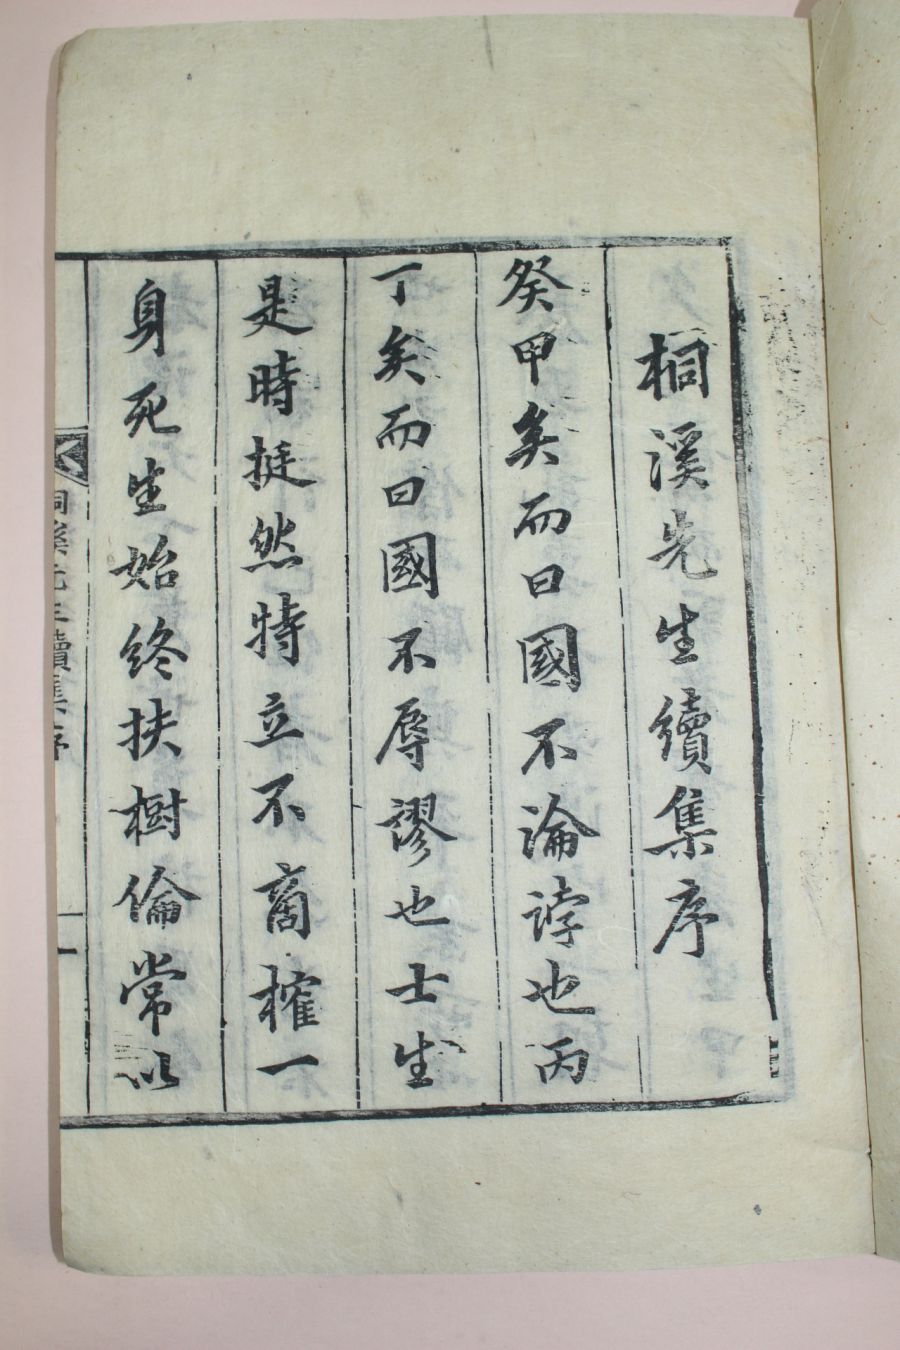 桐溪先生續集序
癸甲矣而曰國不淪誖也丙
丁矣而曰國不辱謬也士生
是時挺然特立不商榷一
身死生始終扶樹倫常以
桐溪先生續集序
一